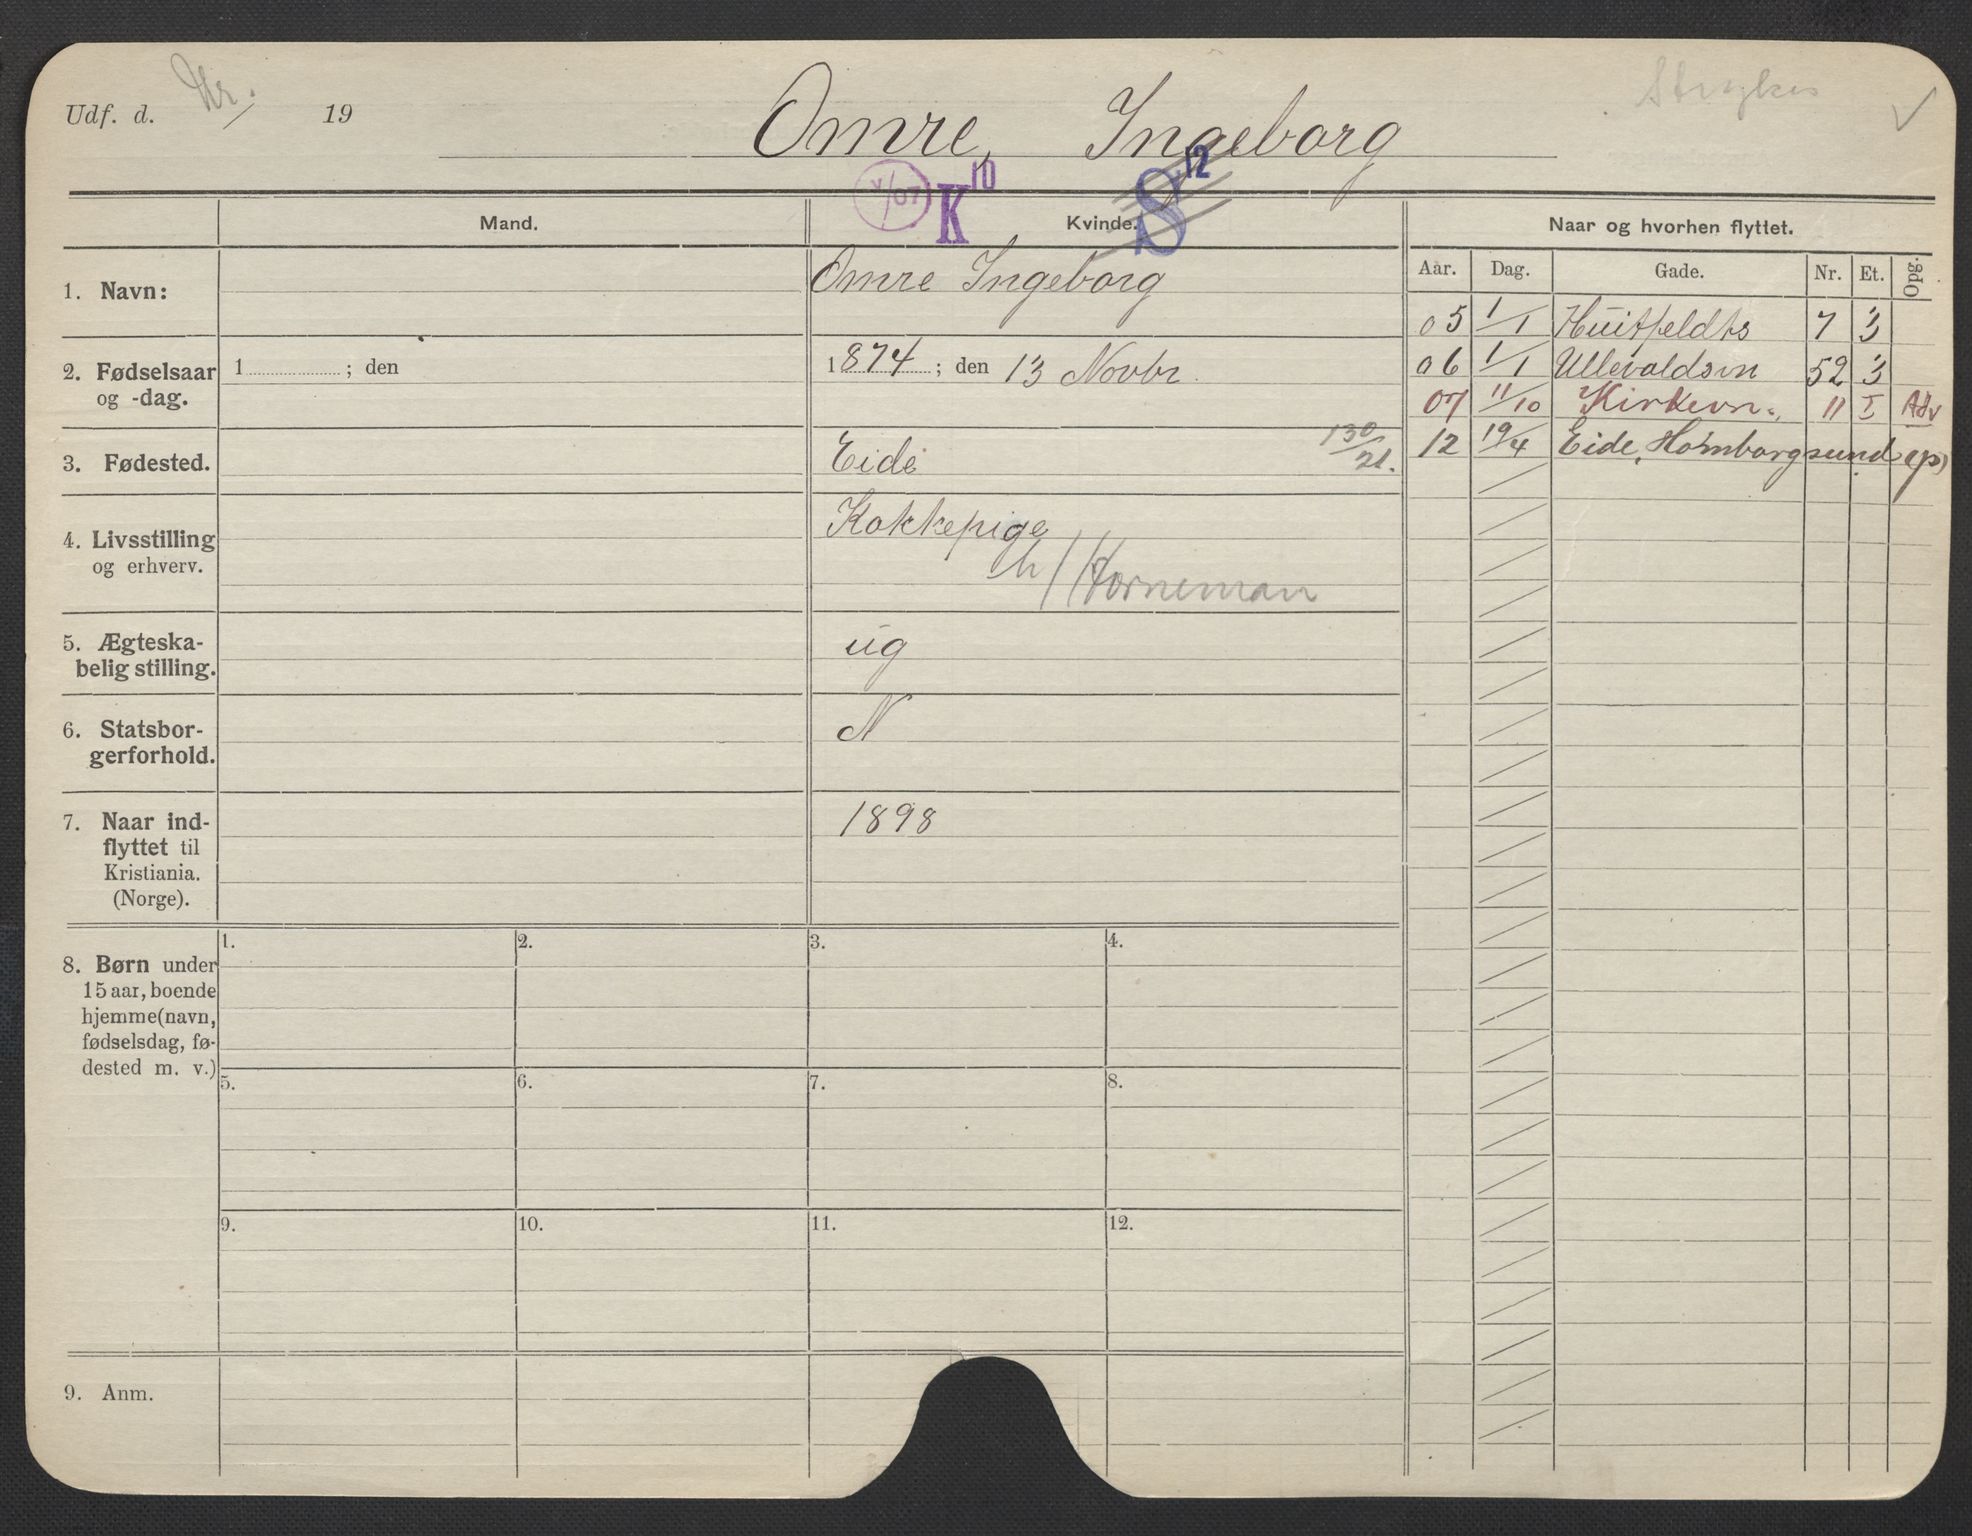 Udf. d. / 19
Omre, Ingeborg
Strykes
K 10
S 12
Mand.
Kvinde.
Naar og hvorhen flyttet.
Aar. Dag. Gade. Nr. Et. Opg.
1. Navn:
Omre Ingeborg
2. Fødselsaar og -dag.
1 ; den
1874 ; den 13 Novbr.
3. Fødested.
Eide
130/21.
4. Livsstilling og erhverv.
Kokkepige
h/ Horneman
5. Ægteskabelig stilling.
ug
6. Statsborgerforhold.
N
7. Naar indflyttet til Kristiania. (Norge).
1898
05 1/1 Huitfeldts 7 3
06 1/1 Ullevoldsvn 52 3
07 11/10 Kirkevn. 11 I Adv
12 19/4 Eide, Homborgsund (p)
8. Børn under
15 aar, boende
hjemme (navn,
fødselsdag, fø-
dested m. v.)
1. 2. 3. 4.
5. 6. 7. 8.
9. 10. 11. 12.
9. Anm.